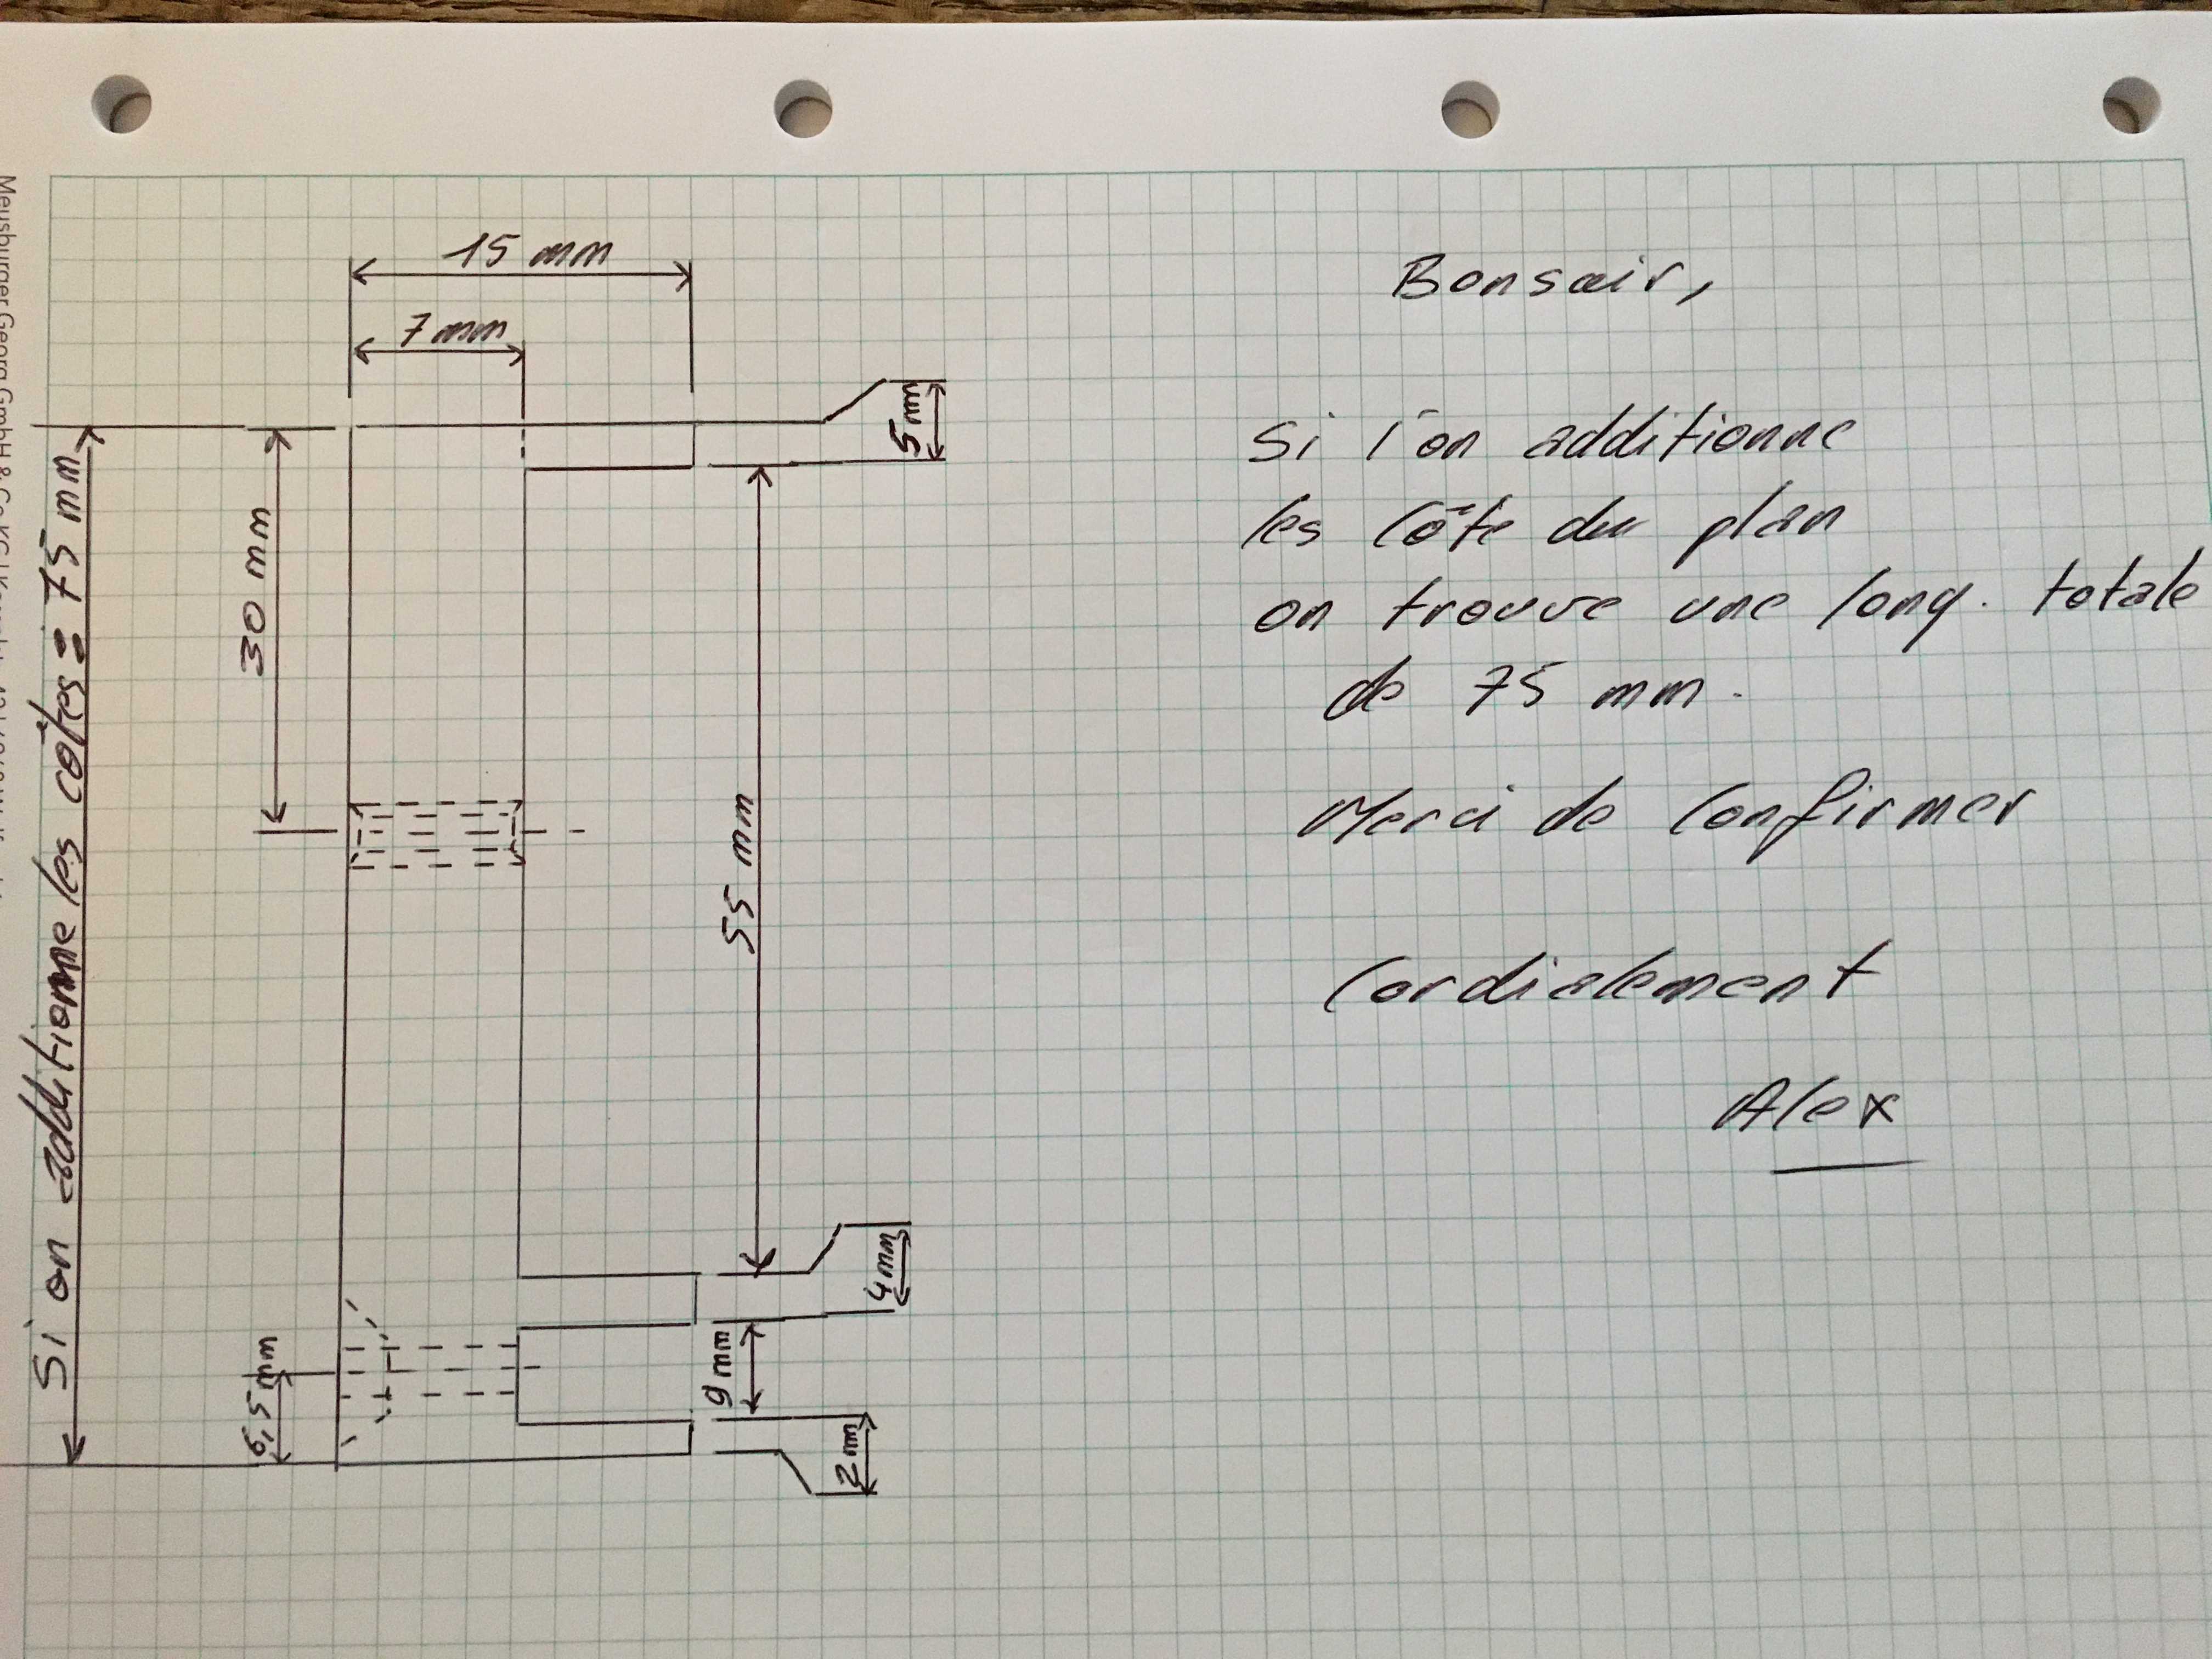 15 mm
7 mm
5 mm
30 mm
55 mm
4 mm
9 mm
2 mm
6,5 mm
Si on additionne les côtes = 75 mm
Bonsoir,
Si l'on additionne
les côte du plan
on trouve une long. totale
de 75 mm.
Merci de confirmer
Cordialement
Alex
Meusburger Georg GmbH & Co KG